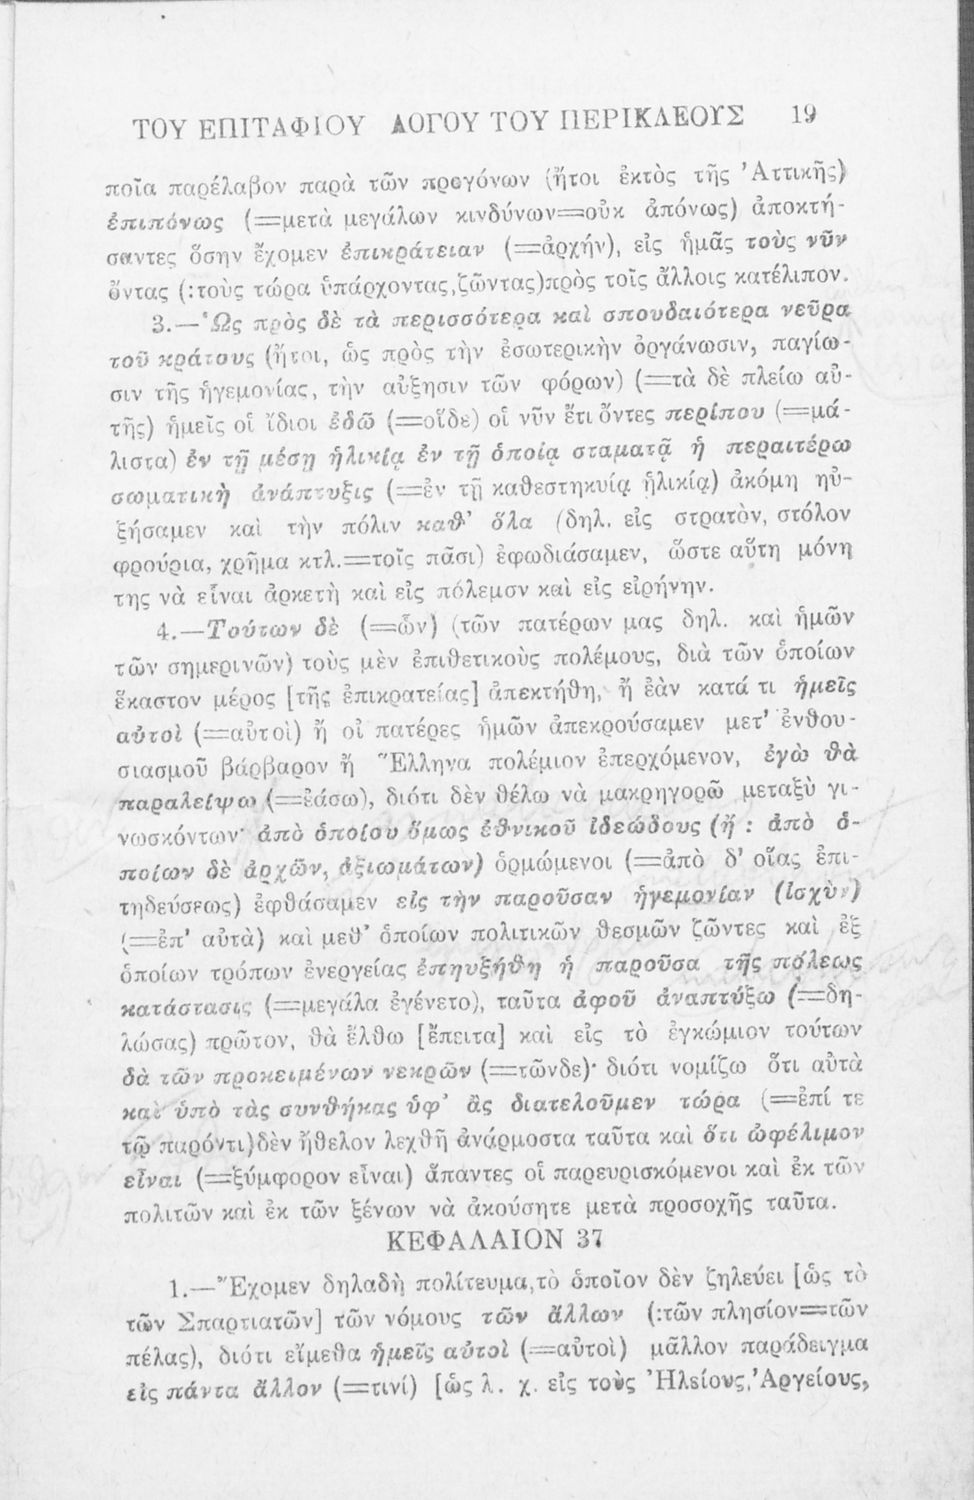 ΤΟΥ ΕΠΙΤΑΦΙΟΥ ΛΟΓΟΥ ΤΟΥ ΠΕΡΙΚΛΕΟΥΣ 19
ποῖα παρέλαβον παρὰ τῶν προγόνων (ἤτοι ἐκτὸς τῆς Ἀττικῆς)
ἐπιπόνως (=μετὰ μεγάλων κινδύνων=οὐκ ἀπόνως) ἀποκτή-
σαντες ὅσην ἔχομεν ἐπικράτειαν (=ἀρχήν), εἰς ἡμᾶς τοὺς νῦν
ὄντας (:τοὺς τώρα ὑπάρχοντας,ζῶντας)πρὸς τοῖς ἄλλοις κατέλιπον.
3.—Ὡς πρὸς δὲ τὰ περισσότερα καὶ σπουδαιότερα νεῦρα
τοῦ κράτους (ἤτοι, ὡς πρὸς τὴν ἐσωτερικὴν ὀργάνωσιν, παγίω-
σιν τῆς ἡγεμονίας, τὴν αὔξησιν τῶν φόρων) (=τὰ δὲ πλείω αὐ-
τῆς) ἡμεῖς οἱ ἴδιοι ἐδῶ (=οἵδε) οἱ νῦν ἔτι ὄντες περίπου (=μά-
λιστα) ἐν τῇ μέσῃ ἡλικίᾳ ἐν τῇ ὁποίᾳ σταματᾷ ἡ περαιτέρω
σωματικὴ ἀνάπτυξις (=ἐν τῇ καθεστηκυίᾳ ἡλικίᾳ) ἀκόμη ηὐ-
ξήσαμεν καὶ τὴν πόλιν καθ' ὅλα (δηλ. εἰς στρατὸν, στόλον
φρούρια, χρῆμα κτλ.=τοῖς πᾶσι) ἐφωδιάσαμεν, ὥστε αὕτη μόνη
της νὰ εἶναι ἀρκετὴ καὶ εἰς πόλεμον καὶ εἰς εἰρήνην.
4.—Τούτων δὲ (=ὧν) (τῶν πατέρων μας δηλ. καὶ ἡμῶν
τῶν σημερινῶν) τοὺς μὲν ἐπιθετικοὺς πολέμους, διὰ τῶν ὁποίων
ἕκαστον μέρος [τῆς ἐπικρατείας] ἀπεκτήθη, ἢ ἐὰν κατά τι ἡμεῖς
αὐτοὶ (=αὐτοὶ) ἢ οἱ πατέρες ἡμῶν ἀπεκρούσαμεν μετ' ἐνθου-
σιασμοῦ βάρβαρον ἢ Ἕλληνα πολέμιον ἐπερχόμενον, ἐγὼ θὰ
παραλείψω (=ἐάσω), διότι δὲν θέλω νὰ μακρηγορῶ μεταξὺ γι-
νωσκόντων· ἀπὸ ὁποίου ὅμως ἐθνικοῦ ἰδεώδους (ἤ : ἀπὸ ὁ-
ποίων δὲ ἀρχῶν, ἀξιωμάτων) ὁρμώμενοι (=ἀπὸ δ' οἵας ἐπι-
τηδεύσεως) ἐφθάσαμεν εἰς τὴν παροῦσαν ἡγεμονίαν (ἰσχὺν)
(=ἐπ' αὐτὰ) καὶ μεθ' ὁποίων πολιτικῶν θεσμῶν ζῶντες καὶ ἐξ
ὁποίων τρόπων ἐνεργείας ἐπηυξήθη ἡ παροῦσα τῆς πόλεως
κατάστασις (=μεγάλα ἐγένετο), ταῦτα ἀφοῦ ἀναπτύξω (=δη-
λώσας) πρῶτον, θὰ ἔλθω [ἔπειτα] καὶ εἰς τὸ ἐγκώμιον τούτων
δὰ τῶν προκειμένων νεκρῶν (=τῶνδε)· διότι νομίζω ὅτι αὐτὰ
καὶ ὑπὸ τὰς συνθήκας ὑφ' ἃς διατελοῦμεν τώρα (=ἐπί τε
τῷ παρόντι)δὲν ἤθελον λεχθῆ ἀνάρμοστα ταῦτα καὶ ὅτι ὠφέλιμον
εἶναι (=ξύμφορον εἶναι) ἅπαντες οἱ παρευρισκόμενοι καὶ ἐκ τῶν
πολιτῶν καὶ ἐκ τῶν ξένων νὰ ἀκούσητε μετὰ προσοχῆς ταῦτα.
ΚΕΦΑΛΑΙΟΝ 37
1.—Ἔχομεν δηλαδὴ πολίτευμα,τὸ ὁποῖον δὲν ζηλεύει [ὡς τὸ
τῶν Σπαρτιατῶν] τῶν νόμους τῶν ἄλλων (:τῶν πλησίον=τῶν
πέλας), διότι εἴμεθα ἡμεῖς αὐτοὶ (=αὐτοὶ) μᾶλλον παράδειγμα
εἰς πάντα ἄλλον (=τινί) [ὡς λ. χ. εἰς τοὺς Ἠλείους,Ἀργείους,